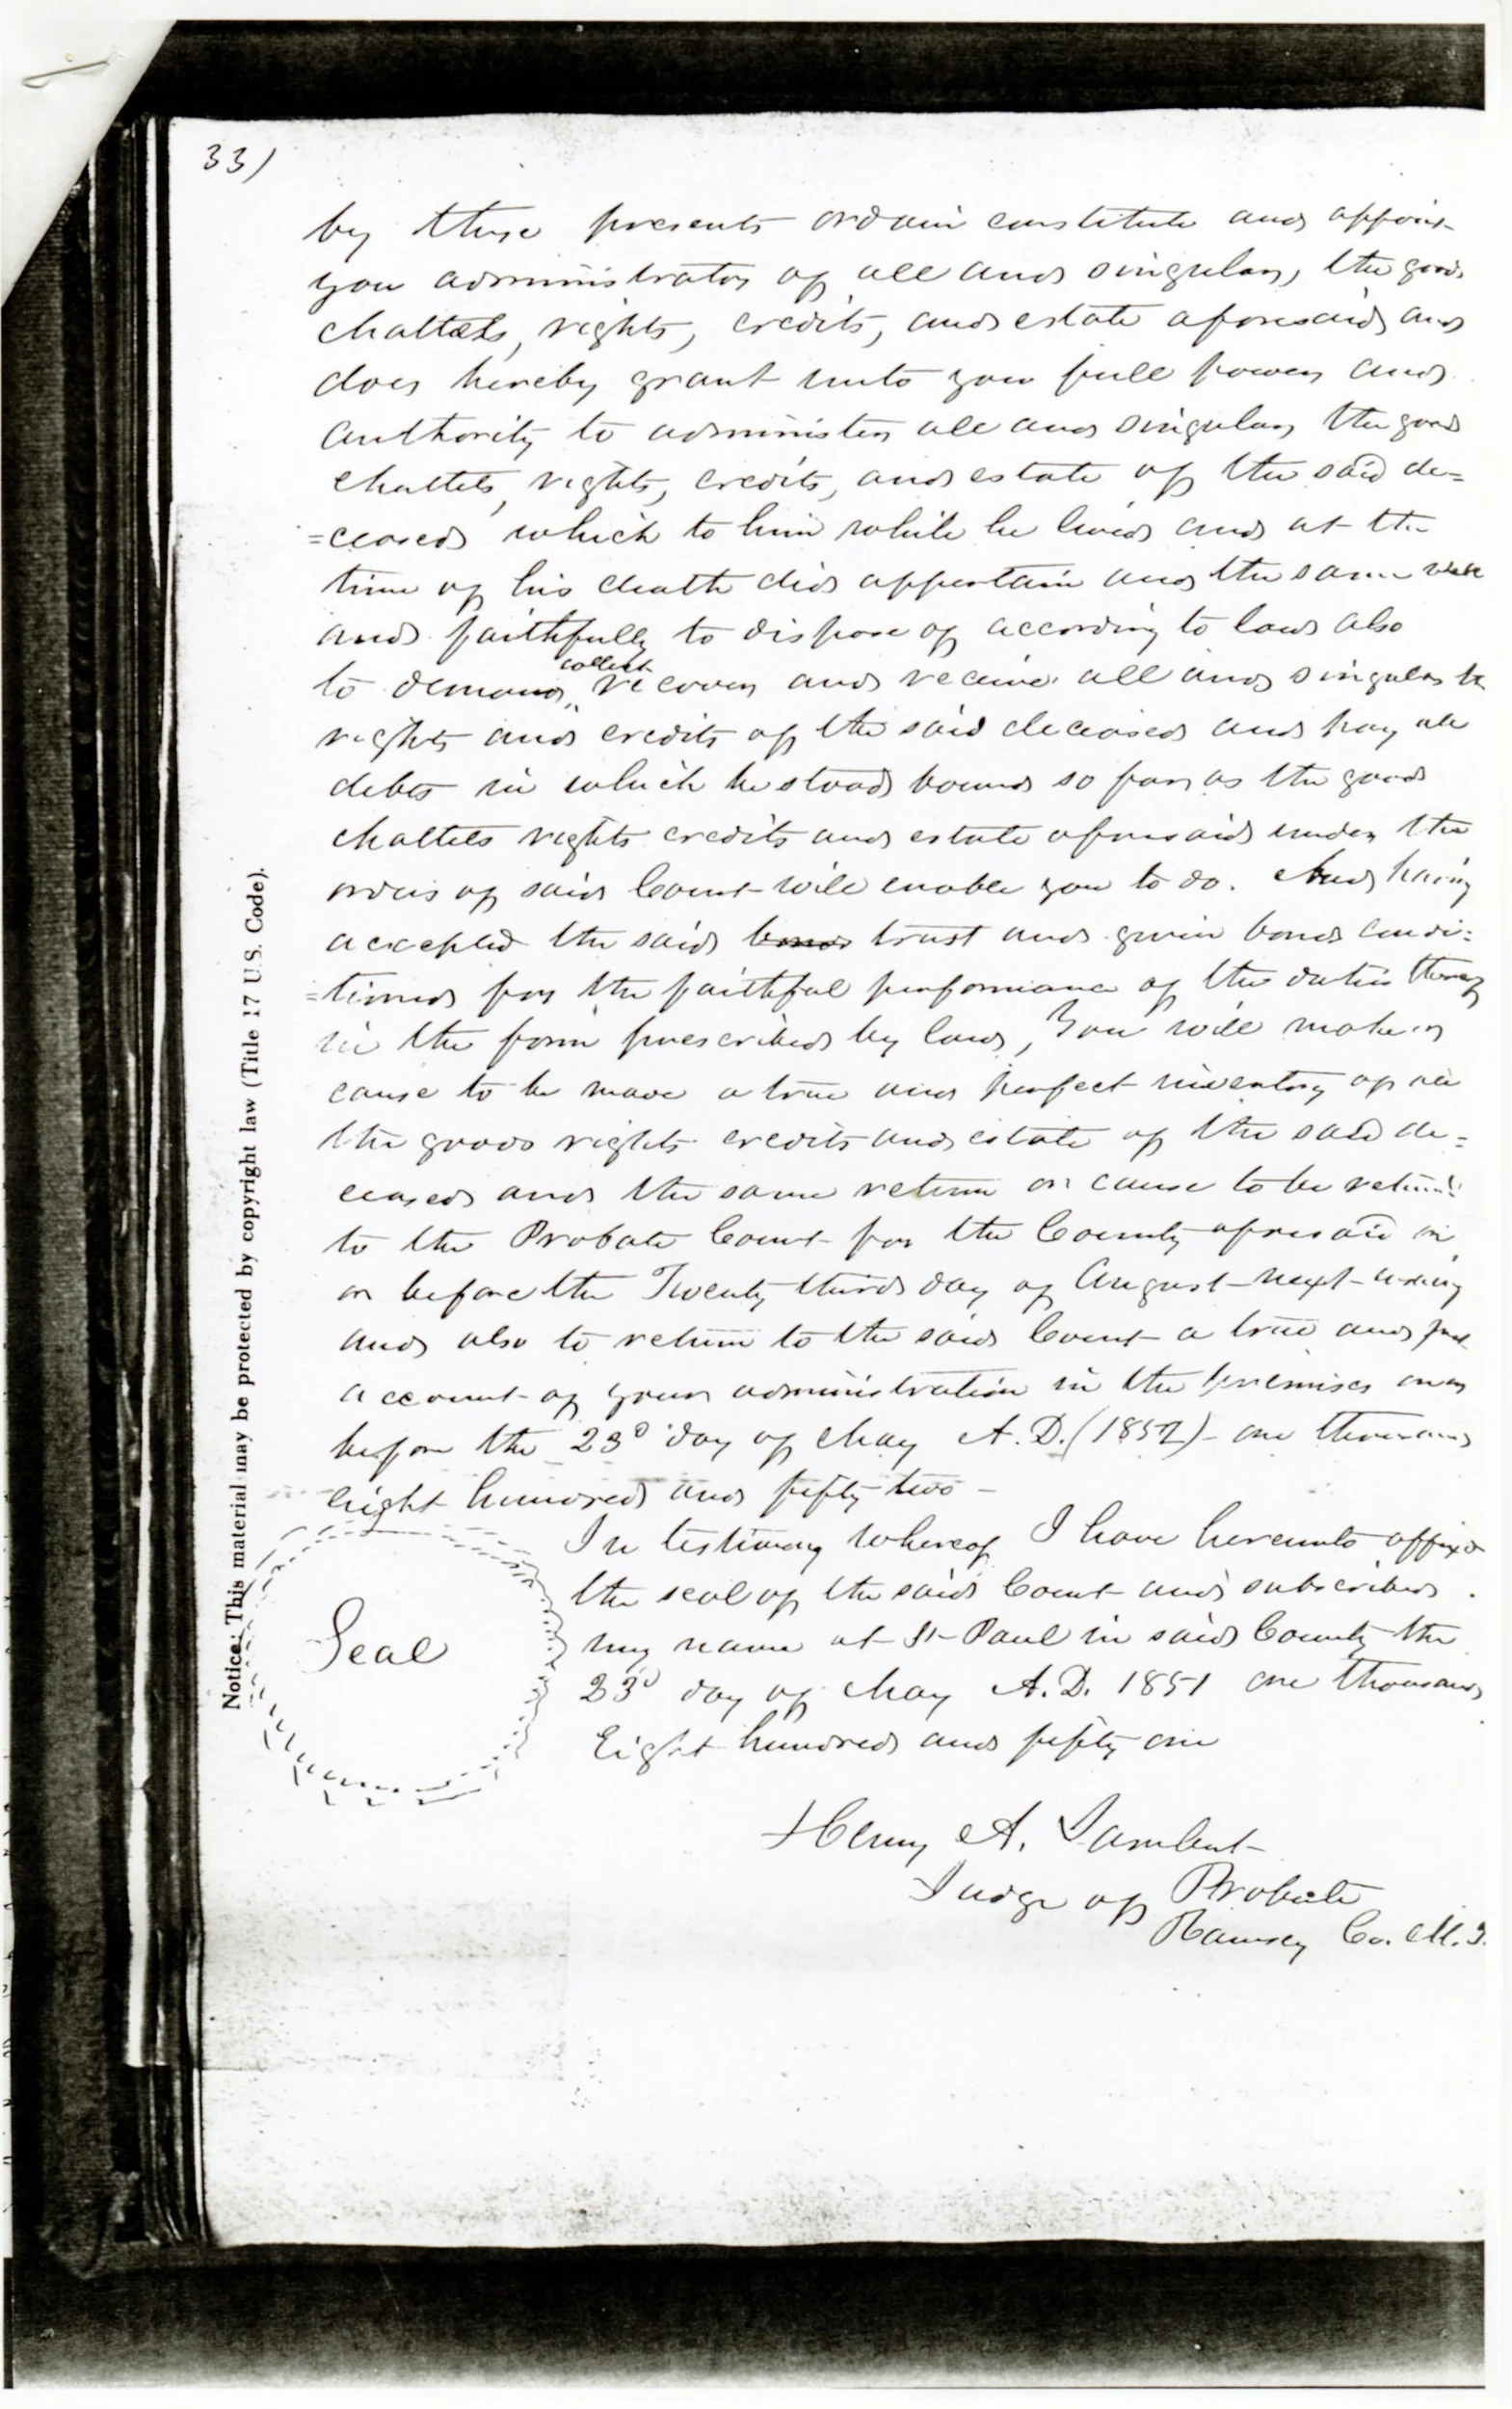 33)
by these presents ordain constitute and appoint
you administrator of all and singular, the goods
chattels, rights, credits, and estate aforesaid, and
does hereby grant unto you full power and
authority to administer all and singular the goods
chattels, rights, credits, and estate of the said de=
=ceased which to him while he lived and at the
time of his death did appertain and the same well
and faithfully to dispose of according to law also
to demand, collect recover and receive all and singular the
rights and credits of the said deceased and pay all
debts in which he stood bound so far as the goods
chattels rights credits and estate aforesaid under the
orders of said Court will enable you to do. And having
accepted the said bond trust and given bond condi=
=tioned for the faithful performance of the duties thereof
in the form prescribed by law, You will make or
cause to be made a true and perfect inventory of all
the goods rights credits and estate of the said de=
ceased and the same return or cause to be returned
to the Probate Court for the County aforesaid in
or before the Twenty third day of August next
and also to return to the said Court a true and just
account of your administration in the premises on or
before the 23d day of May A.D. (1852) one thousand
eight hundred and fifty two -
In testimony whereof I have hereunto affixed
the seal of the said Court and subscribed
my name at St Paul in said County the
23d day of May A.D. 1851 one thousand
Eight hundred and fifty one
Seal
Henry A. Lambert
Judge of Probate
Ramsey Co. M.T.
Notice: This material may be protected by copyright law (Title 17 U.S. Code).